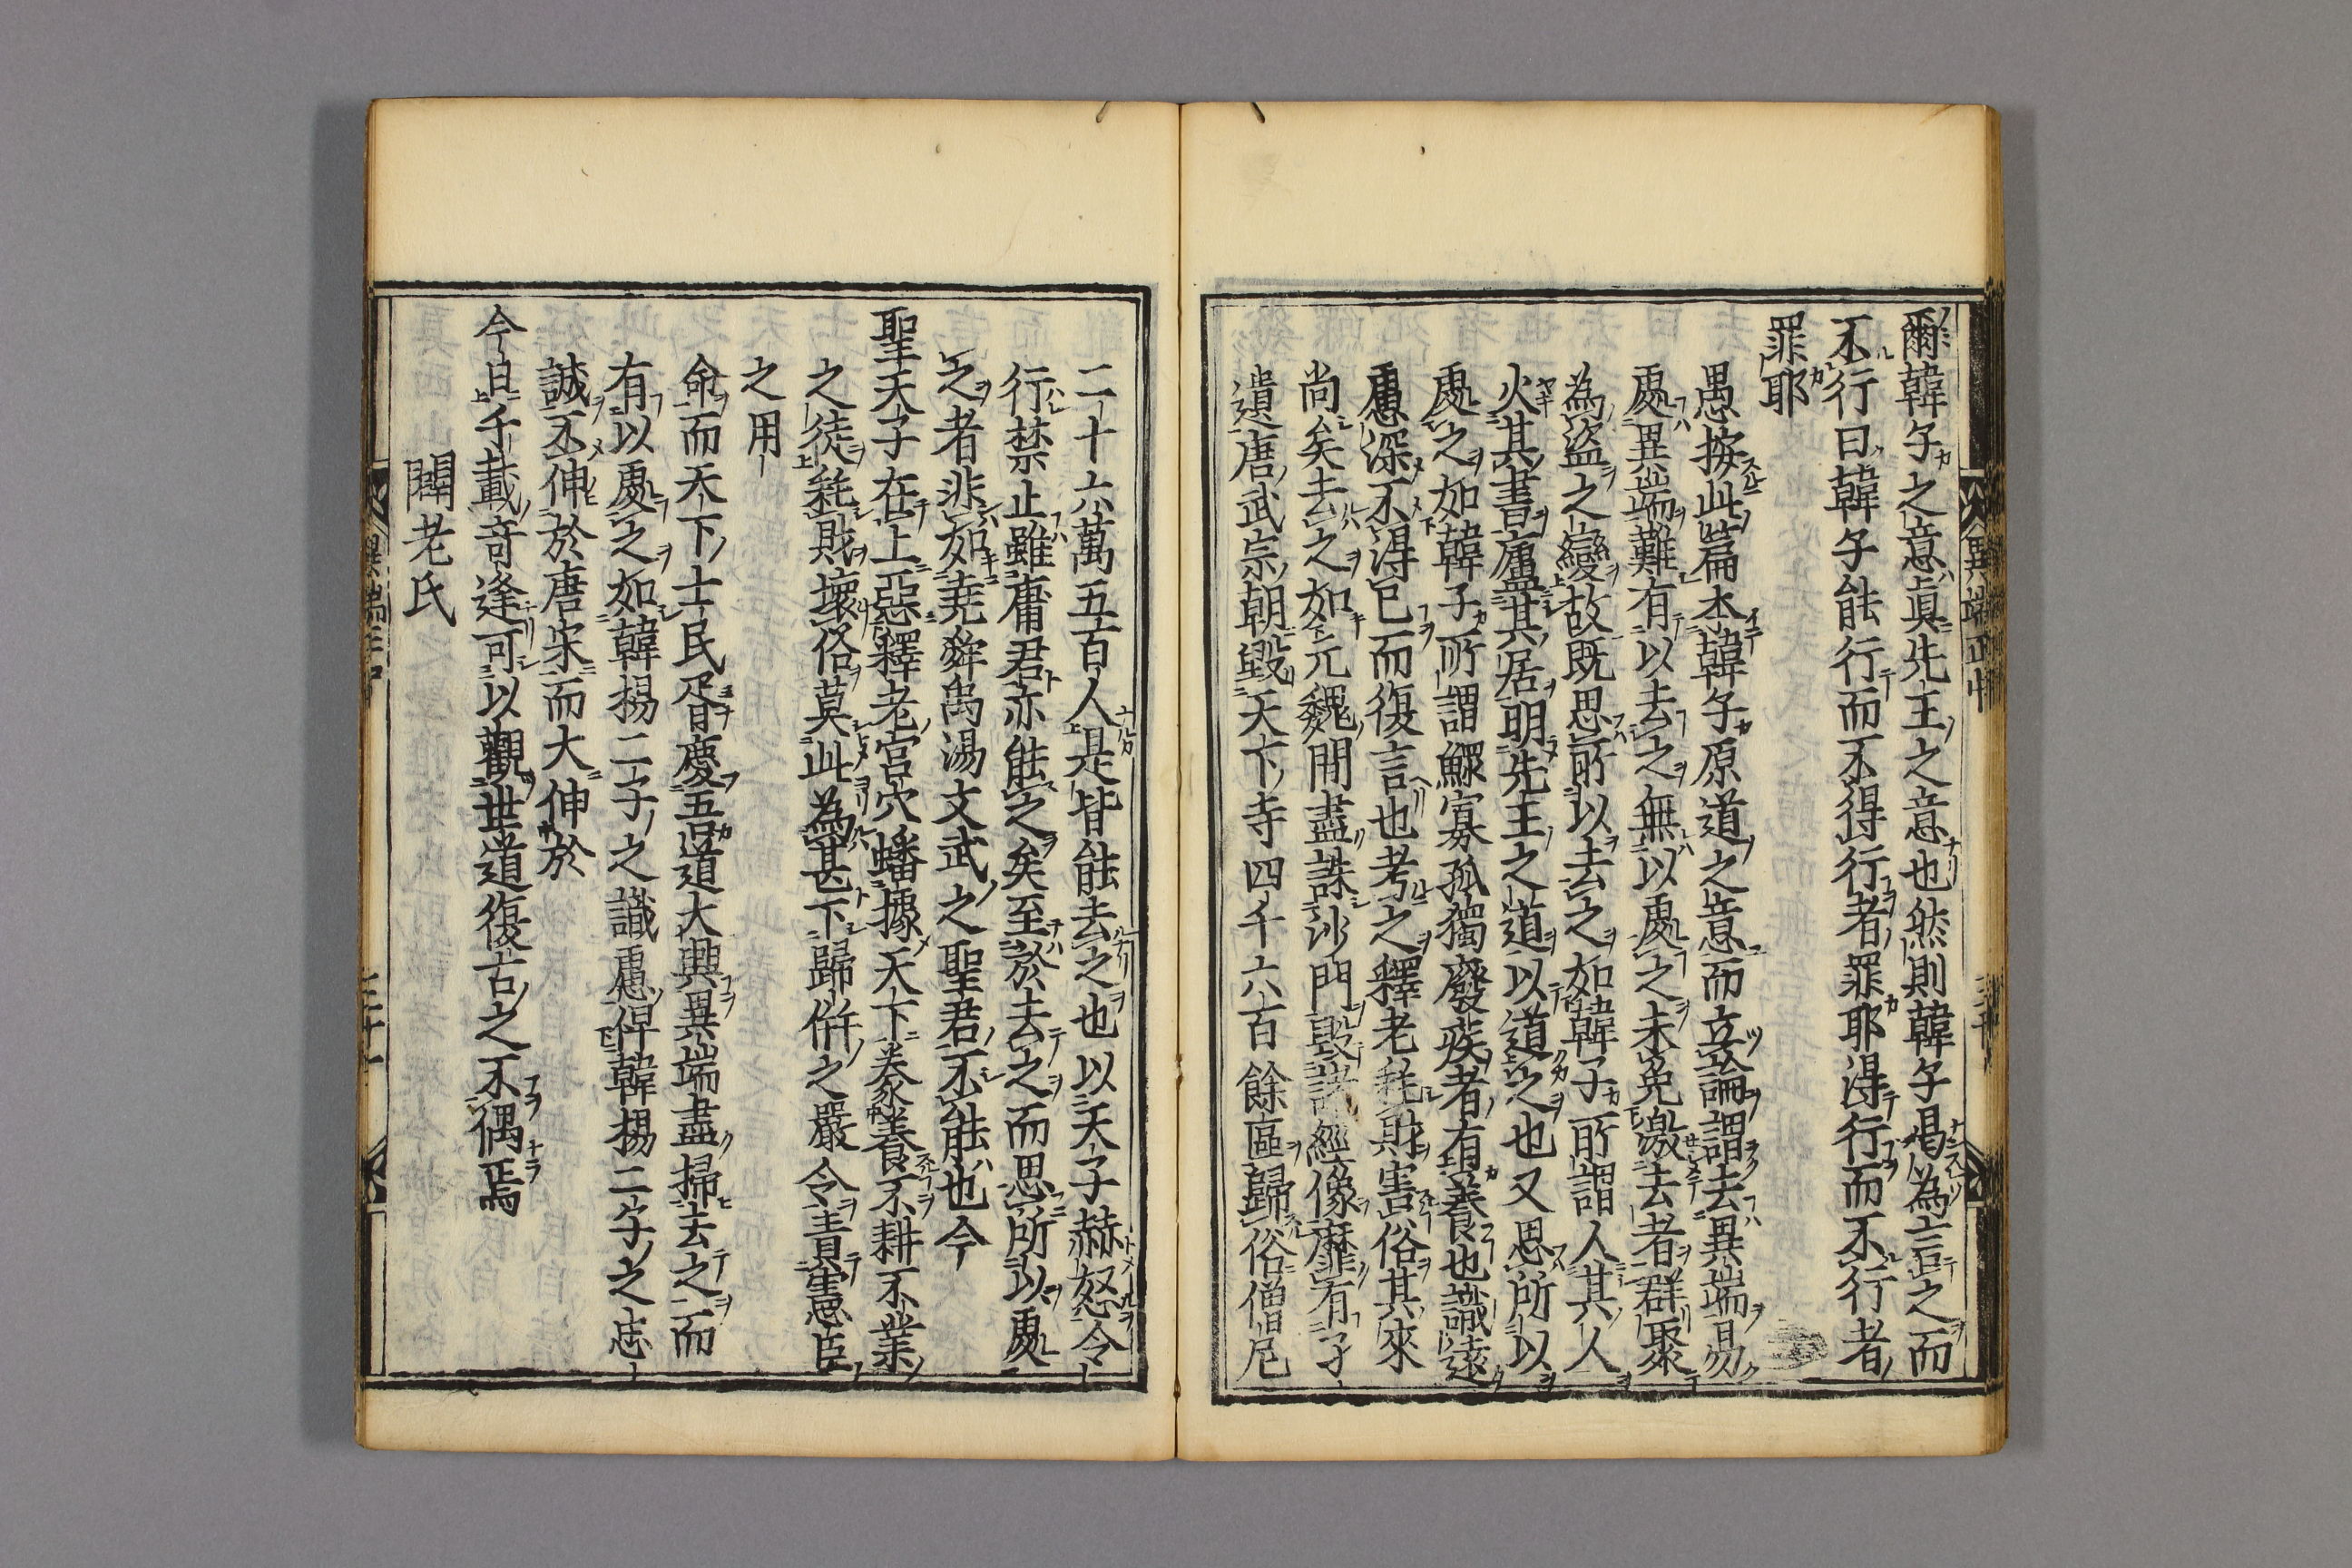 爾韓子之意眞先王之意也然則韓子曷為言之而
不行曰韓子能行而不得行者罪耶得行而不行者
罪耶
愚按此篇本韓子原道之意而立論謂去異端易
處異端難有以去之無以處之未免激去者群聚
為盜之變故既思所以去之如韓子所謂人其人
火其書廬其居明先王之道以道之也又思所以
處之如韓子所謂鰥寡孤獨廢疾者有養也識遠
慮深不得已而復言也考之釋老耗財害俗其來
尚矣去之如元魏間盡誅沙門毀諸經像靡有孑
遺唐武宗朝毀天下寺四千六百餘區歸俗僧尼
二十六萬五百人是皆能去之也以天子赫怒令
行禁止雖庸君亦能之矣至於去之而思所以處
之者非如堯舜禹湯文武之聖君不能也今
聖天子在上惡釋老宮穴蟠據天下豢養不耕不業
之徒耗財壞俗莫此為甚下歸併之嚴令責憲臣
之用
命而天下士民胥慶吾道大興異端盡掃去之而
有以處之如韓楊二子之識慮俾韓楊二子之志
誠不伸於唐宋而大伸於
今日千載竒逢可以觀世道復古之不偶焉
闢老氏
異端正中